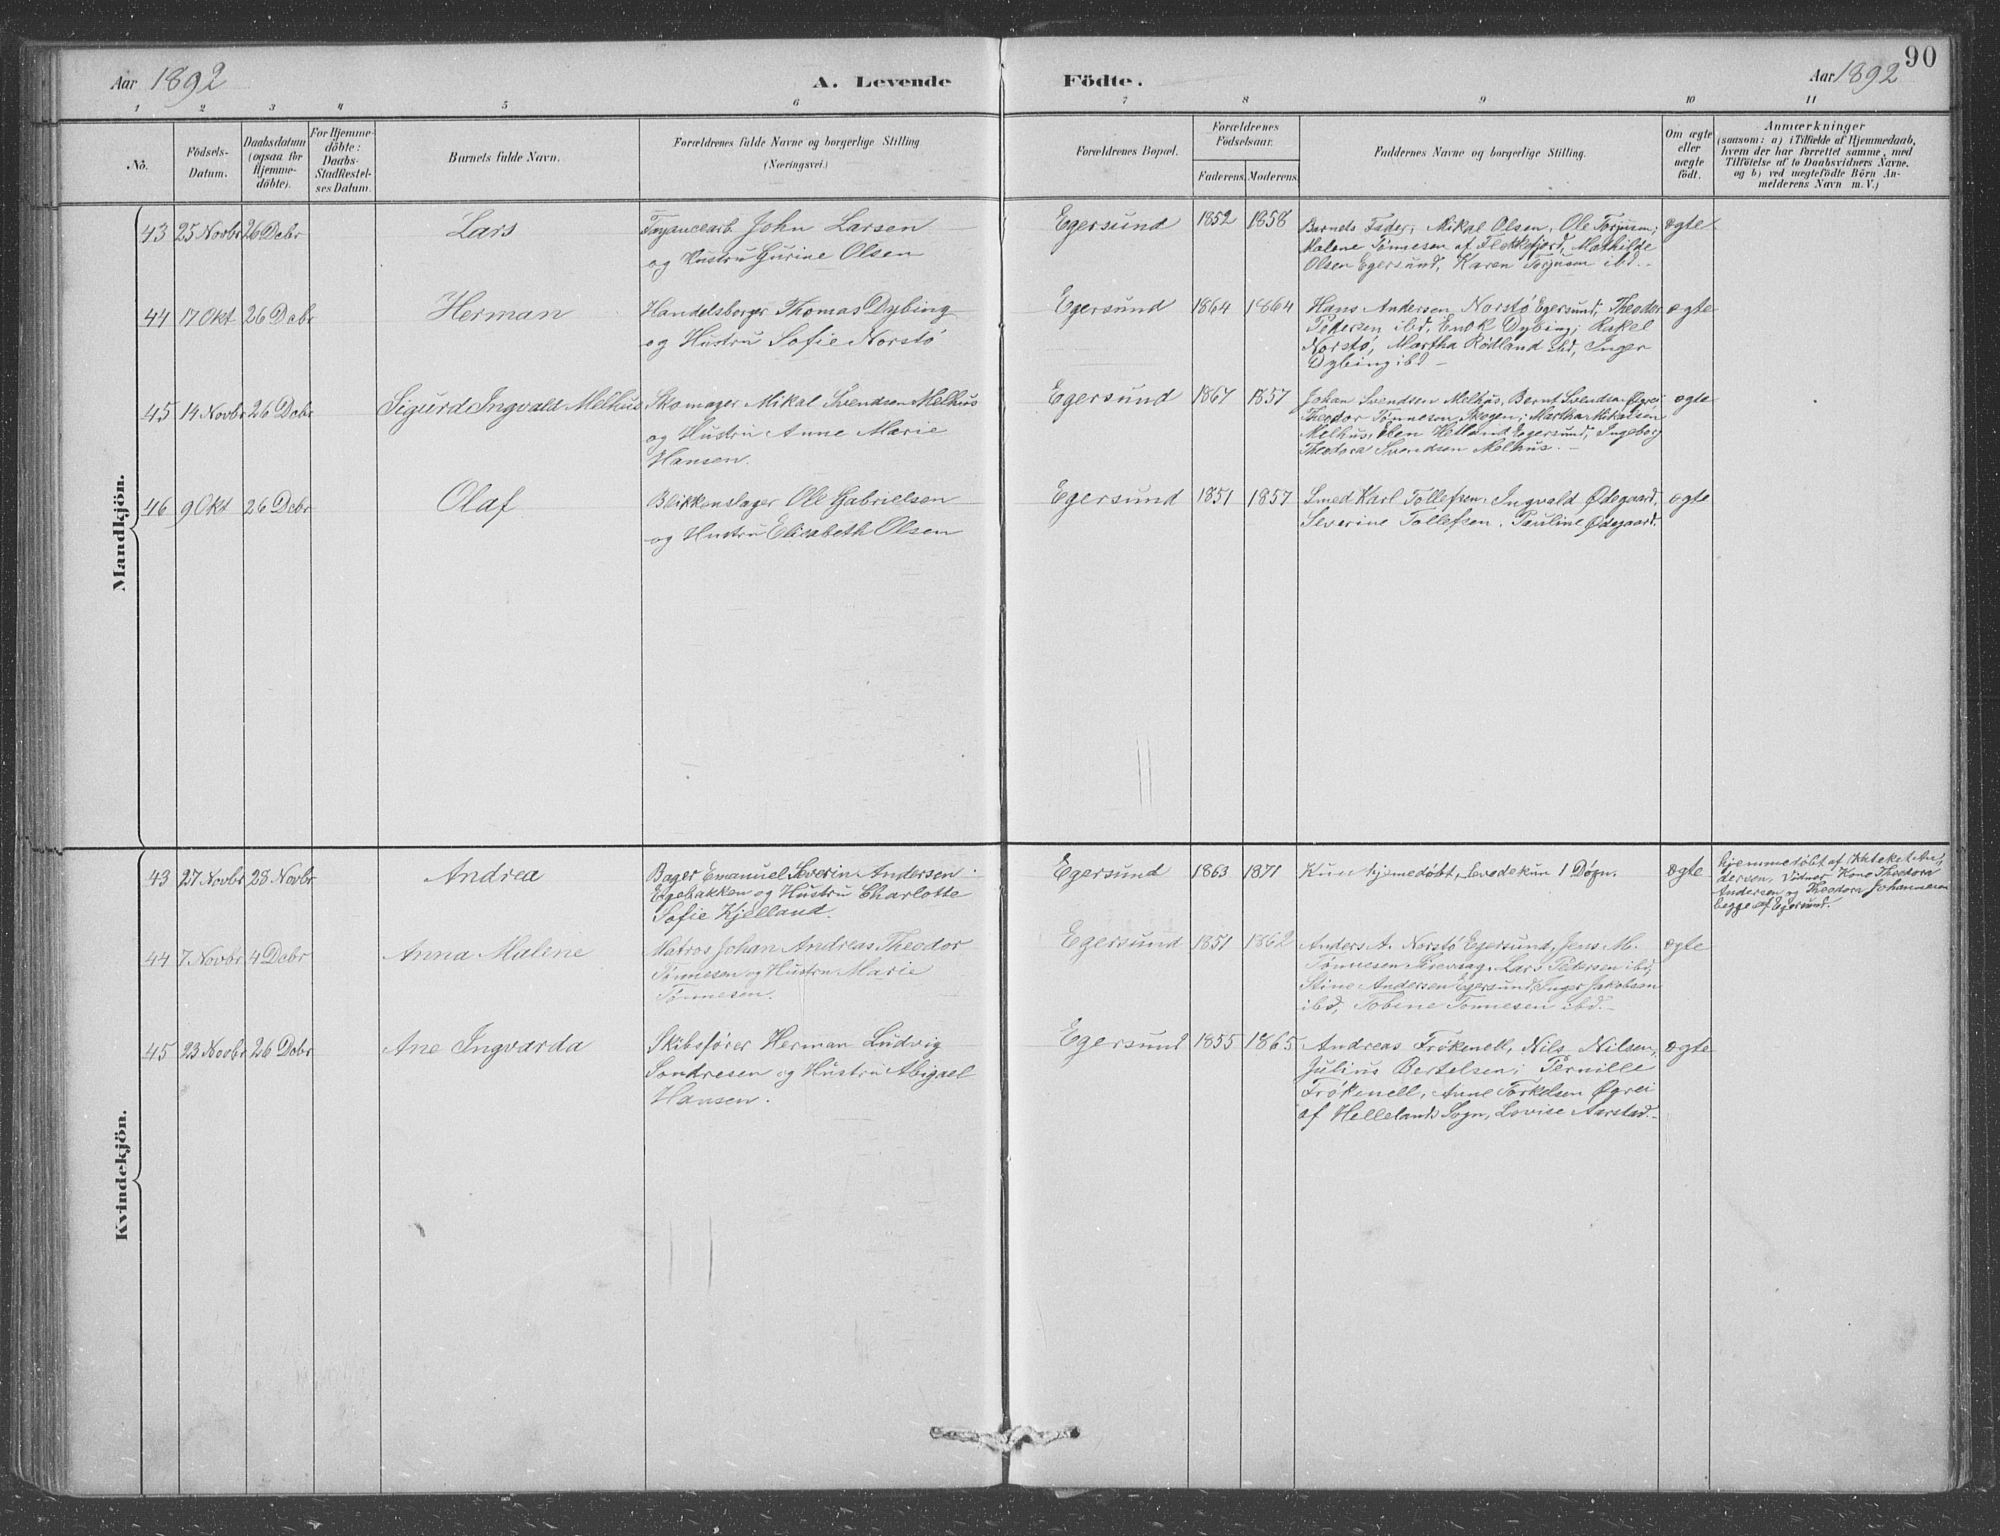 90
Aar 1892 A. Levende Födte. Aar 1892
1 2 3 4 5 6 7 8 9 10 11
No. Födsels-Datum. Daabsdatum (ogsaa for Hjemmedöbte). For Hjemmedöbte: Daabs-Stadfestelses Datum. Barnets fulde Navn. Forældrenes fulde Navne og borgerlige Stilling. (Næringsvei.) Forældrenes Bopæl. Forældrenes Födselsaar. Faderens. Moderens. Faddernes Navne og borgerlige Stilling. Om ægte eller uægte födt. Anmærkninger
(saasom: a) i Tilfælde af Hjemmedaab,
hvem der har forrettet samme, med
Tilföielse af to Daabsvidners Navne,
og b) ved uægtefödte Börn An-
melderens Navn m. V.)
Mandkjön.
43 25 Novbr 26 Debr Lars
John Larsen
og Hustru Gurine Olsen
Egersund 1852 1858
Barnets Fader, Mikal Olsen, Ole Torjusen;
Malene Tønnesen af Flekkefjord, Mathilde
Olsen Egersund, Karen Torjusen ibd.
ægte
44 17 Okt 26 Debr Herman
Handelsborger Thomas Dybing
og Hustru Sofie Norstø
Egersund 1864 1864
Hans Andersen Norstø Egersund, Theodor
Pedersen ibd, Enok Dybing; Rakel
Norstø, Martha Rødland ibd, Inger
Dybing ibd
ægte
45 14 Novbr 26 Debr Sigurd Ingvald Melhus
Skomager Mikal Svendsen Melhus
og Hustru Anne Marie
Hansen.
Egersund 1867 1857
Johan Svendsen Melhus, Bernt Svendsen Øgrei
Theodor Tønnesen Skogen; Martha Mikalsen
Melhus, Elen Hetland Egersund, Ingeborg
Theodora Svendsen Melhus.
ægte
46 9 Okt 26 Debr Olaf
Blikkenslager Ole Gabrielsen
og Hustru Elisabeth Olsen
Egersund 1851 1857
Smed Karl Tollefsen, Ingvald Ødegaard,
Severine Tollefsen, Pauline Ødegaard.
ægte
Kvindekjön.
43 27 Novbr 28 Novbr Andrea
Bager Emanuel Severin Andersen
Egebakken og Hustru Charlotte
Sofie Kjelland.
Egersund 1863 1871
Kun hjemedøbt, levede kun 1 Døgn.
ægte
hjemmedøbt af An-
dersen, Vidner Kone Theodora
Andersen og Theodora Johannesen
begge af Egersund.
44 7 Novbr 4 Debr Anna Malene
Matros Johan Andreas Theodor
Tønnesen og Hustru Marie
Tønnesen.
Egersund 1851 1862
Anders A. Norstø Egersund, Jens M.
Tønnesen Lars Pedersen ibd,
Stine Andersen Egersund, Inger Jakobsen
ibd, Tobine Tønnesen ibd.
ægte
45 23 Novbr 26 Debr Ane Ingvarda
Skibsfører Herman Ludvig
Sondresen og Hustru Abigael
Hansen.
Egersund 1855 1865
Andreas Frøkenell, Nils Nilsen,
Julius Bertelsen; Pernille
Frøkenell, Anne Torkelsen Øgrei
af Hellelands Sogn, Lovise Aarstad.
ægte